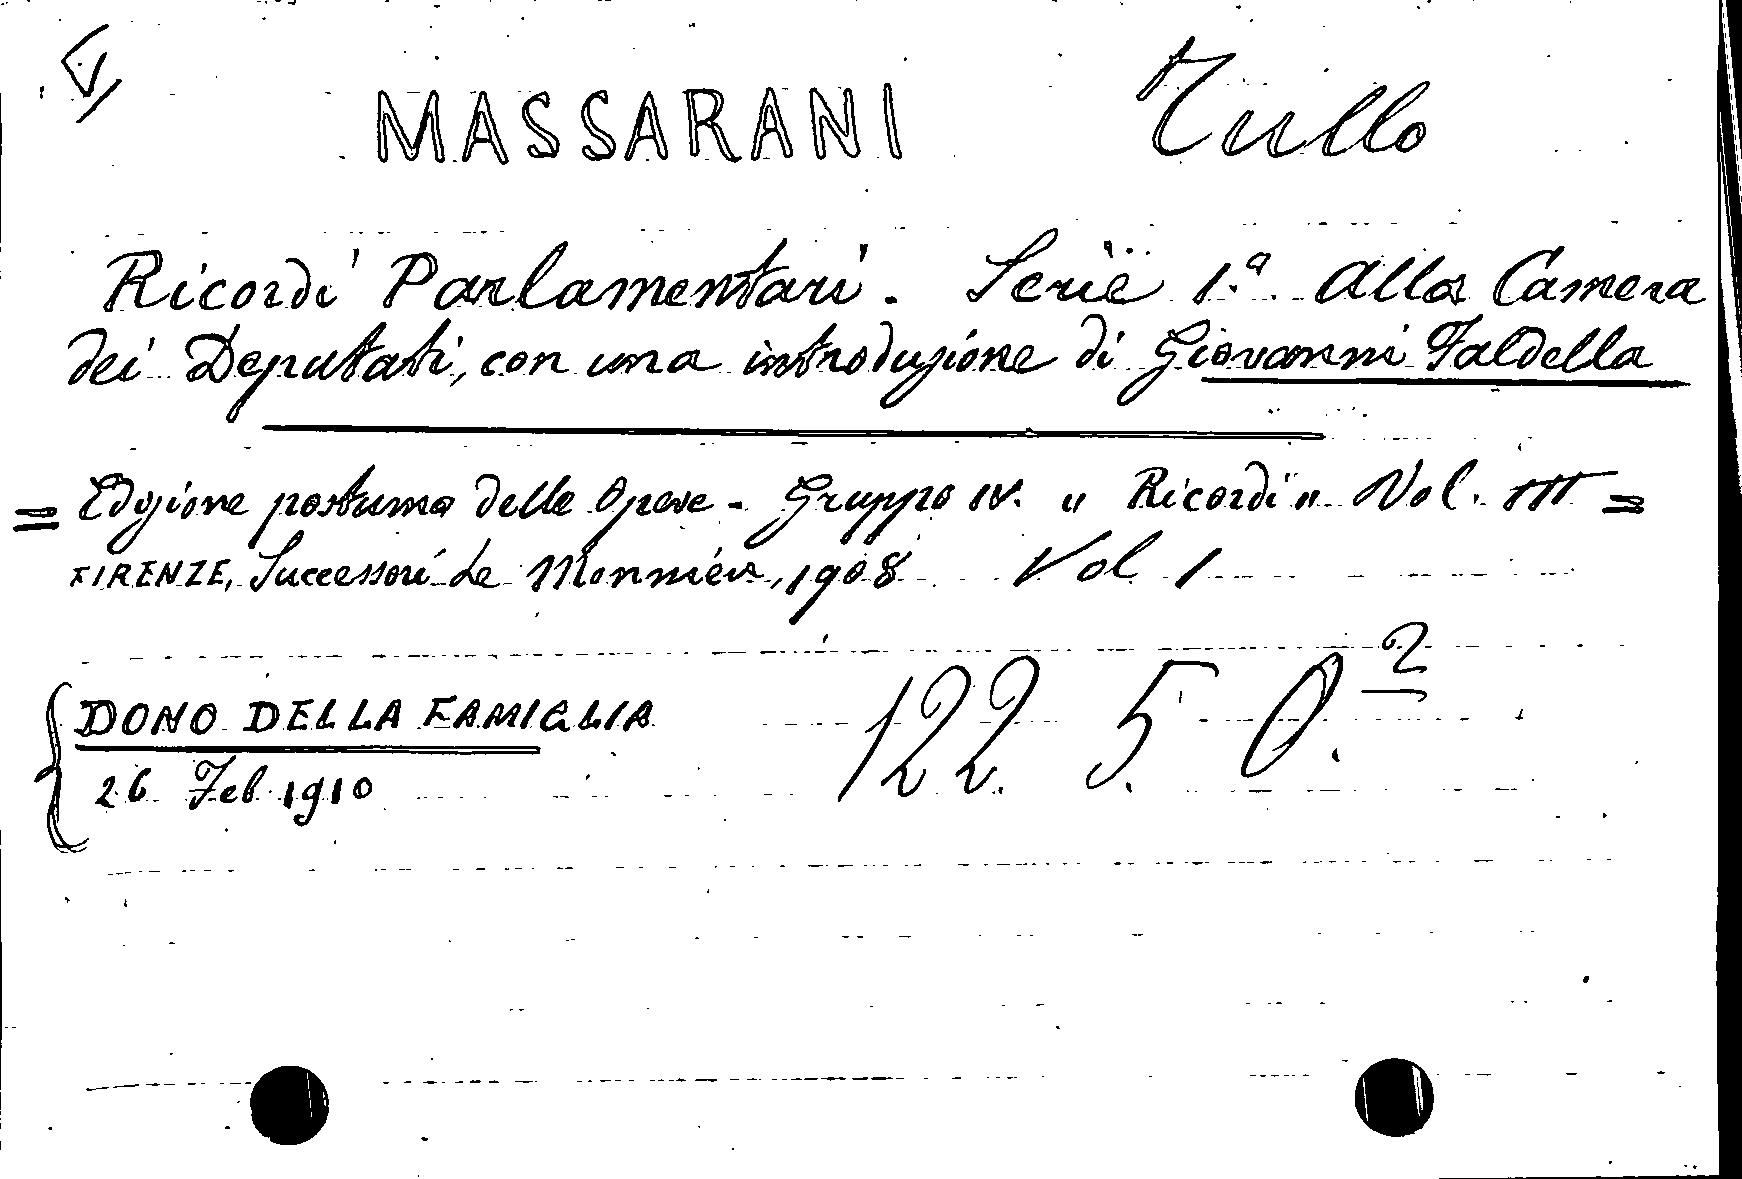 MASSARANI Tullo
Ricordi Parlamentari. Serie 1.a Alla Camera
dei Deputati, con una introduzione di Giovanni Faldella
= Edizione postuma delle Opere - Gruppo IV. " Ricordi " Vol. III =
FIRENZE, Successori Le Monnier, 1908 Vol 1
122. 5. O.2
DONO DELLA FAMIGLIA
26 Feb. 1910